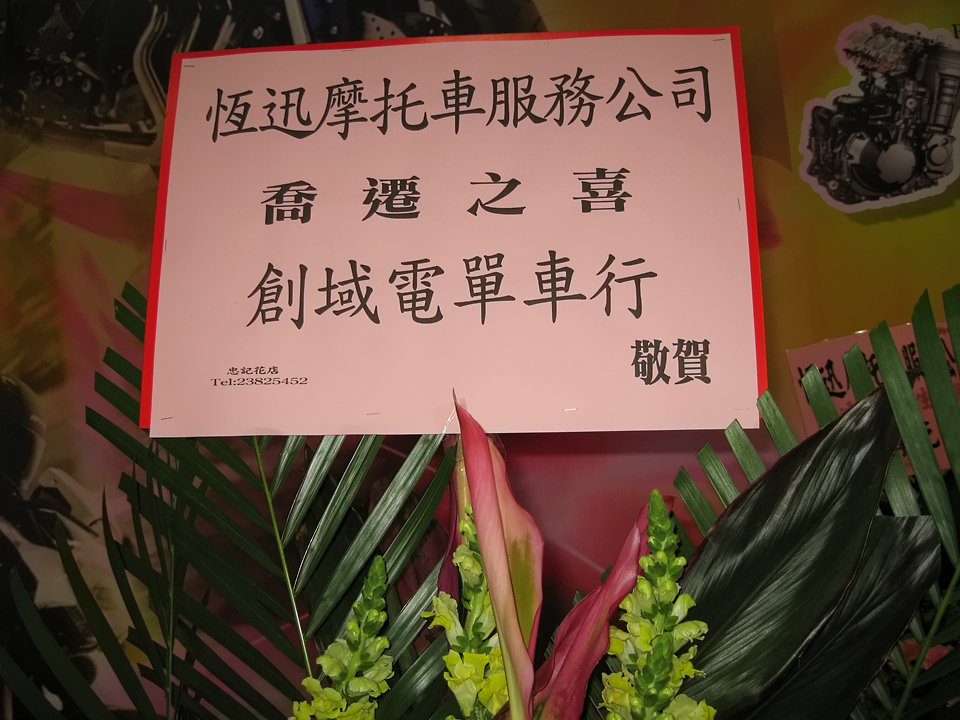 恆迅摩托車服務公司
喬遷之喜
創域電單車行
敬賀
忠記花店
Tel:23825452
恆迅摩托車服